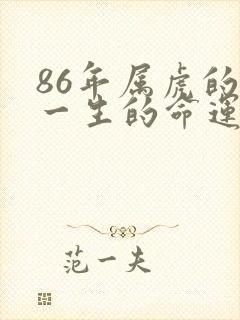 86年属虎的
一生的命运
范一夫